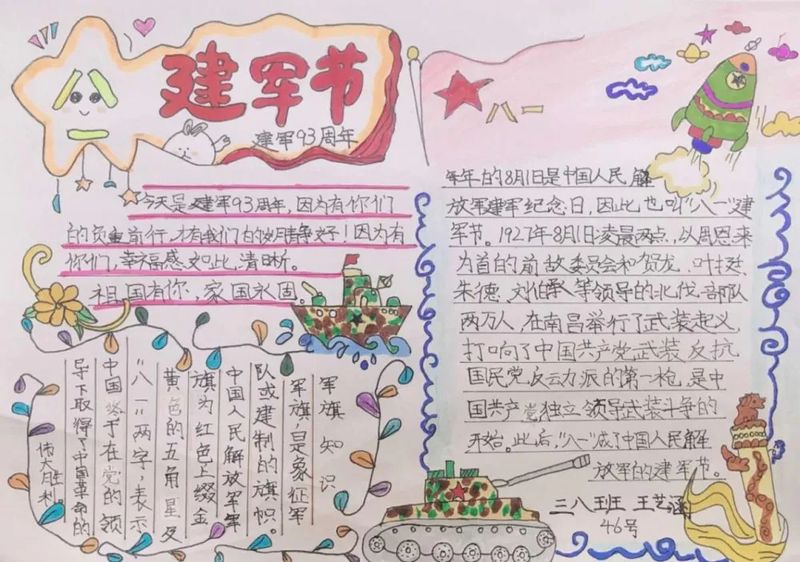 建军节
建军93周年
今天是建军93周年，因为有你们
的负重前行，才有我们的岁月静好！因为有
你们，幸福感如此清晰。
祖国有你，家国永固。
军旗知识
军旗是象征军
队或建制的旗帜。
中国人民解放军军
旗为红色上缀金
黄色的五角星及
“八一”两字，表示
中国军于在党的领
导下取得了中国革命的
伟大胜利。
八一
年年的8月1日是中国人民解
放军建军纪念日，因此也叫“八一”建
军节。1927年8月1日凌晨两点，以周恩来
为首的前敌委员会和贺龙、叶挺、
朱德、刘伯承等领导的北伐部队
两万人，在南昌举行了武装起义，
打响了中国共产党武装反抗
国民党反动力派的第一枪，是中
国共产党独立领导武装斗争的
开始。此后，“八一”成了中国人民解
放军的建军节。
三八班 王艺涵
46号